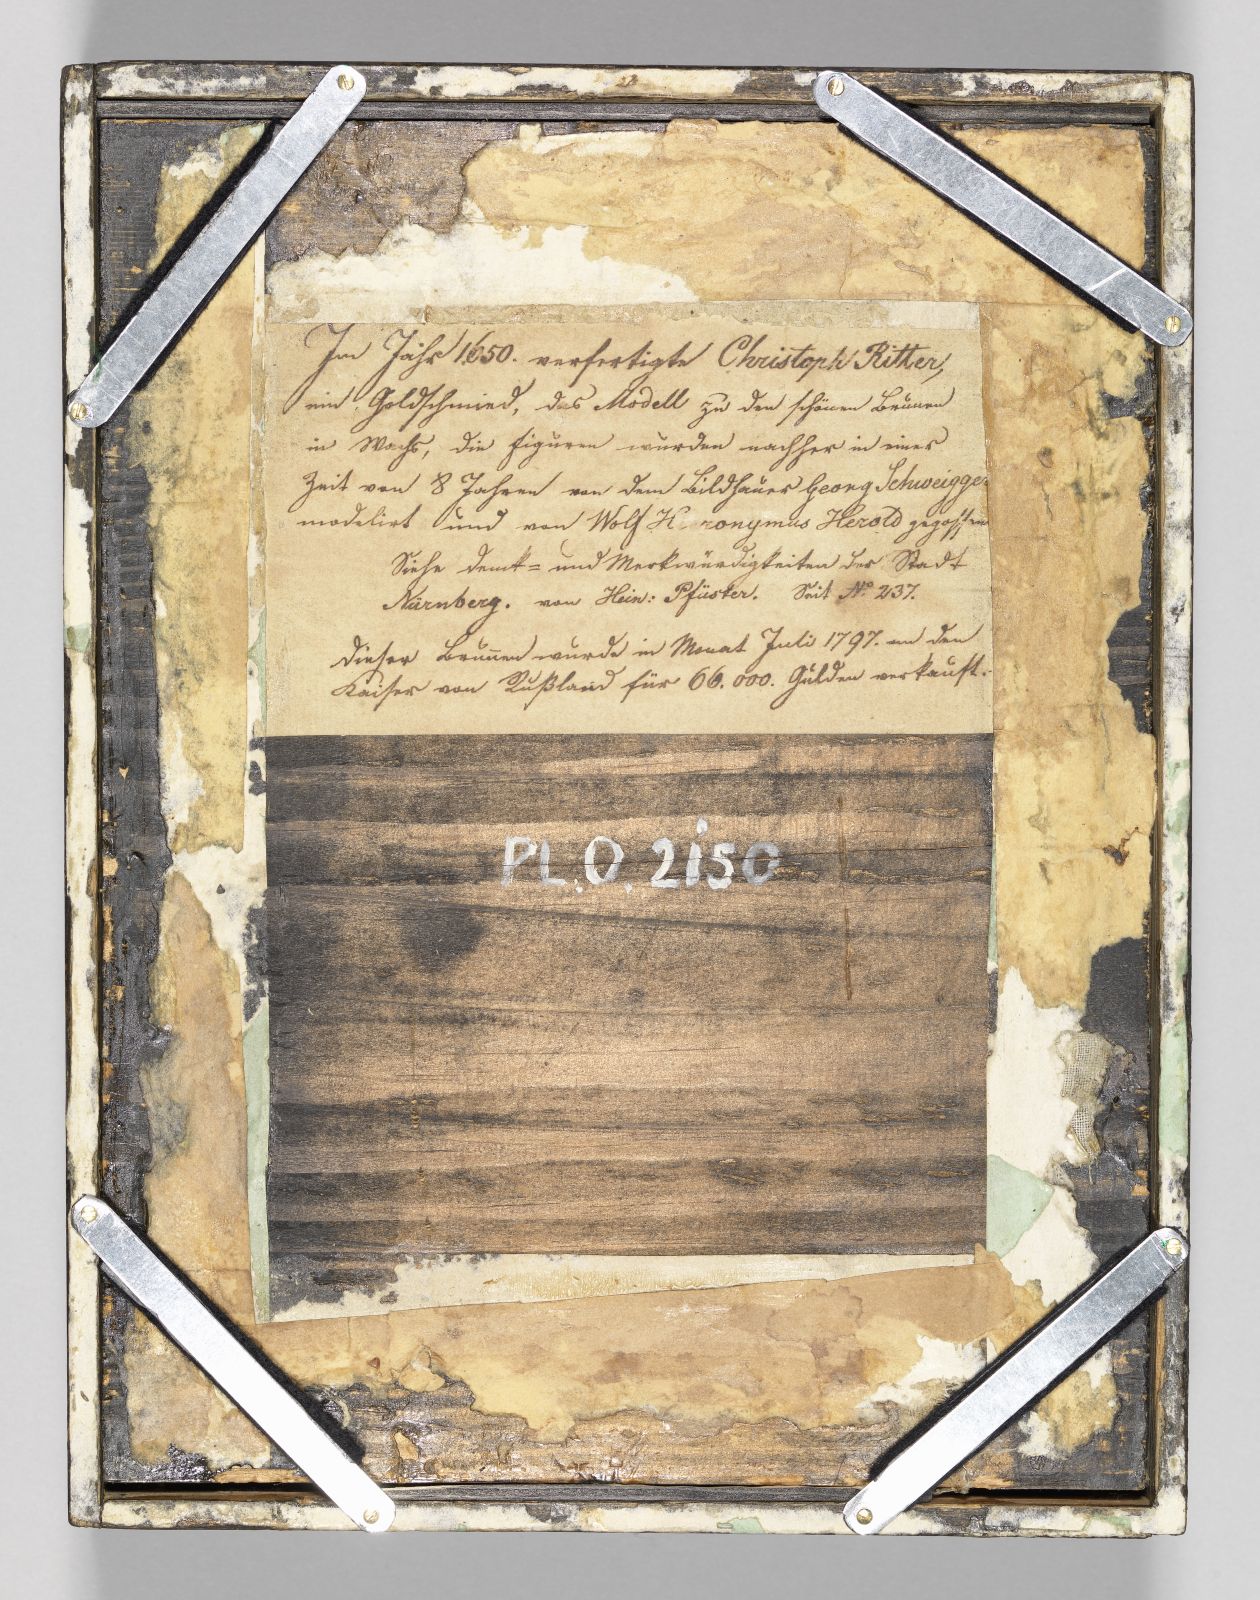 Im Jahr 1650. verfertigte Christoph Ritter,
ein Goldschmied, das Modell zu den schönen Brunen
in Wachs, die Figuren wurden nachher in einer
Zeit von 8 Jahren von dem Bildhauer Georg Schweigger
modelirt und von Wolf H ronymus Herold gegossen
Siehe denk= und Merkwürdigkeiten der Stadt
Nürnberg. von Hein: Pfüster. Seit No. 237.
Dieser Brunen wurde in Monat Juli 1797. an den
Kaiser von Rußland für 66.000. Gulden verkauft.
PL.O.2150